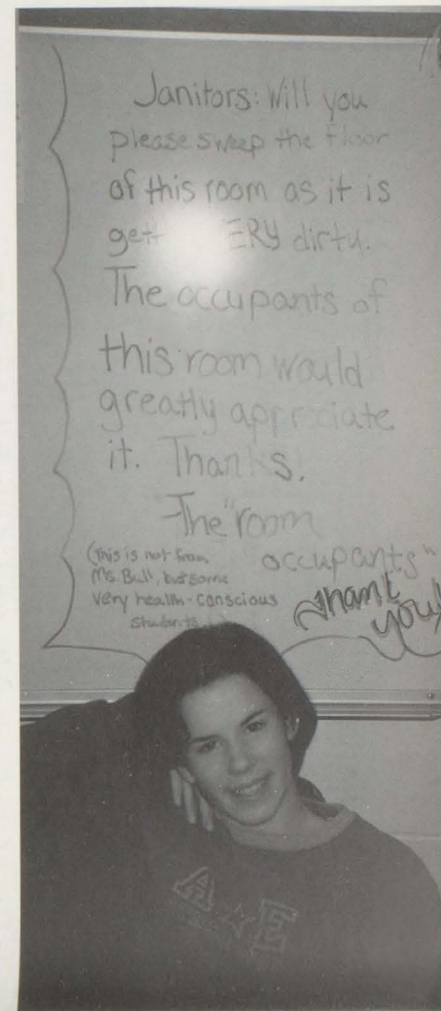 Janitors: Will you
please sweep the floor
of this room as it is
gett ERY dirty.
The occupants of
this room would
greatly appriciate
it. Thanks!
-The "room
occupants"
(this is not from
Ms. Bull, but some
very health-conscious
students.)
Thank
you!
A E